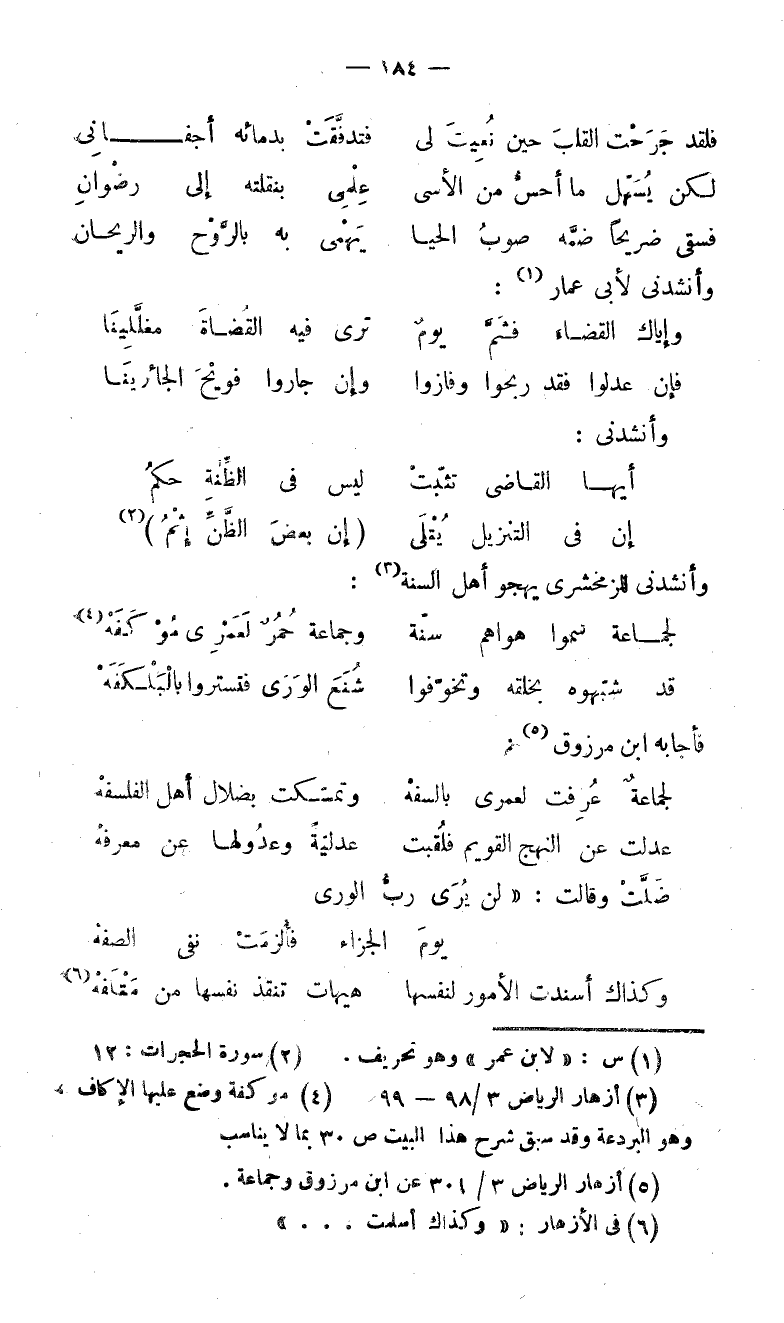 — ١٨٤ —
فلقد جَرَحْت القلبَ حين نُعِيتَ لى فتدفَّقَتْ بدمائه أجفـــانِى
لكن يُسَهّل ما أحسُّ من الأسى عِلْمِى بنقلته إلى رضْوانِ
فسقى ضريحاً ضمَّه صوبُ الحيا يَهْمْى به بالرَّوْح والريحان
وأنشدنى لأبى عمار (١) :
وإياك القضاء فثَمَّ يومٌ ترى فيه القُضاةَ مغلَّلِينَا
فإن عدلوا فقد ربحوا وفازوا وإن جاروا فويْحَ الجائرينَا
وأنشدنى :
أيها القاضى تثبّتْ ليس فى الظِّنةِ حكمُ
إن فى التنزيل يُتْلَى (إن بعضَ الظَّنِّ إثْمُ) (٢)
وأنشدنى للزمخشرى يهجو أهل السنة (٣) :
لجماعة سموا هواهم سنّة وجماعة حُمُرٌ لَعَمْرِى مُوْكَفَهْ (٤)
قد شبّهوه بخلقه وتخوّفوا شُنَعَ الوَرَى فتستروا بالْبَلْكَفَهْ
فأجابه ابن مرزوق (٥) :
لجماعةٌ عُرِفت لعمرى بالسفهْ وتمسّكت بضلال أهل الفلسفهْ
عدلت عن النهج القويم فلُقبت عدليّةً وعدُولها عن معرفهْ
ضَلَّتْ وقالت : « لن يُرَى ربُّ الورى
يومَ الجزاء فأُلزمَتْ نفى الصفهْ
وكذاك أسندت الأمور لنفسها هيهات تنقذ نفسها من مَتْلَفهْ (٦)
(١) س : « لابن عمر » وهو تحريف . (٢) سورة الحجرات : ١٢
(٣) أزهار الرياض ٣/ ٩٨ — ٩٩ (٤) موكفة وضع عليها الإكاف
وهو البردعة وقد سبق شرح هذا البيت ص ٣٠ بما لا يناسب
(٥) أزهار الرياض ٣ / ٣٠١ عن ابن مرزوق وجماعة .
(٦) فى الأزهار : « وكذاك أسلمت . . . »